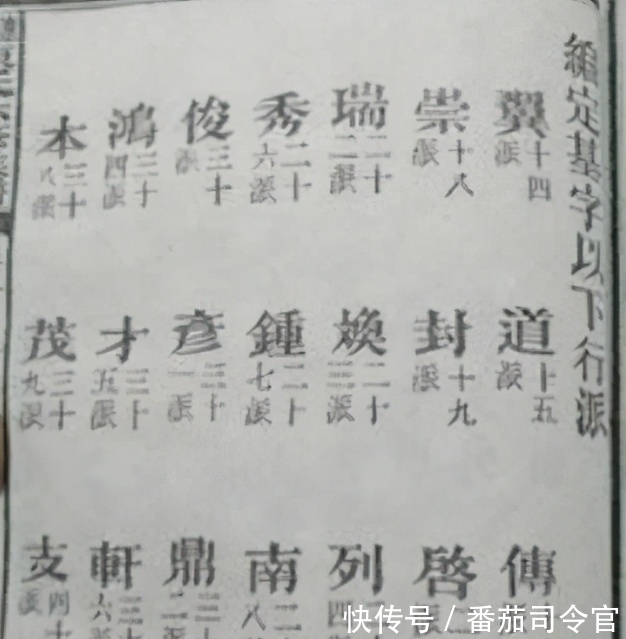 編定基字以下行派
翼十四派 道十五派 傳
崇十八派 封十九派 啓
瑞二十二派 煥二十三派 列
秀二十六派 鍾二十七派 南二十八
俊三十派 彥三十一派 鼎三十二派
鴻三十四派 才三十五派 軒三十六派
本三十八派 茂三十九派 支四十派
快传号 / 番茄司令官